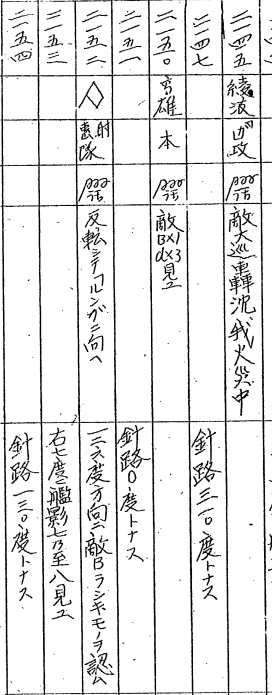 二一四五 綾波 敵大巡轟沈我火災中
二一四七 針路三一〇度トナス
二一五〇 高雄 本 敵B×1 d×3見ユ
二一五一 針路〇度トナス
二一五二 射 隊 反転シテフルンガニ向ヘ 一三六度方向ニ敵Bラシキモノヲ認ム
二一五三 右七度ニ艦影七乃至八見ユ
二一五四 針路一三〇度トナス